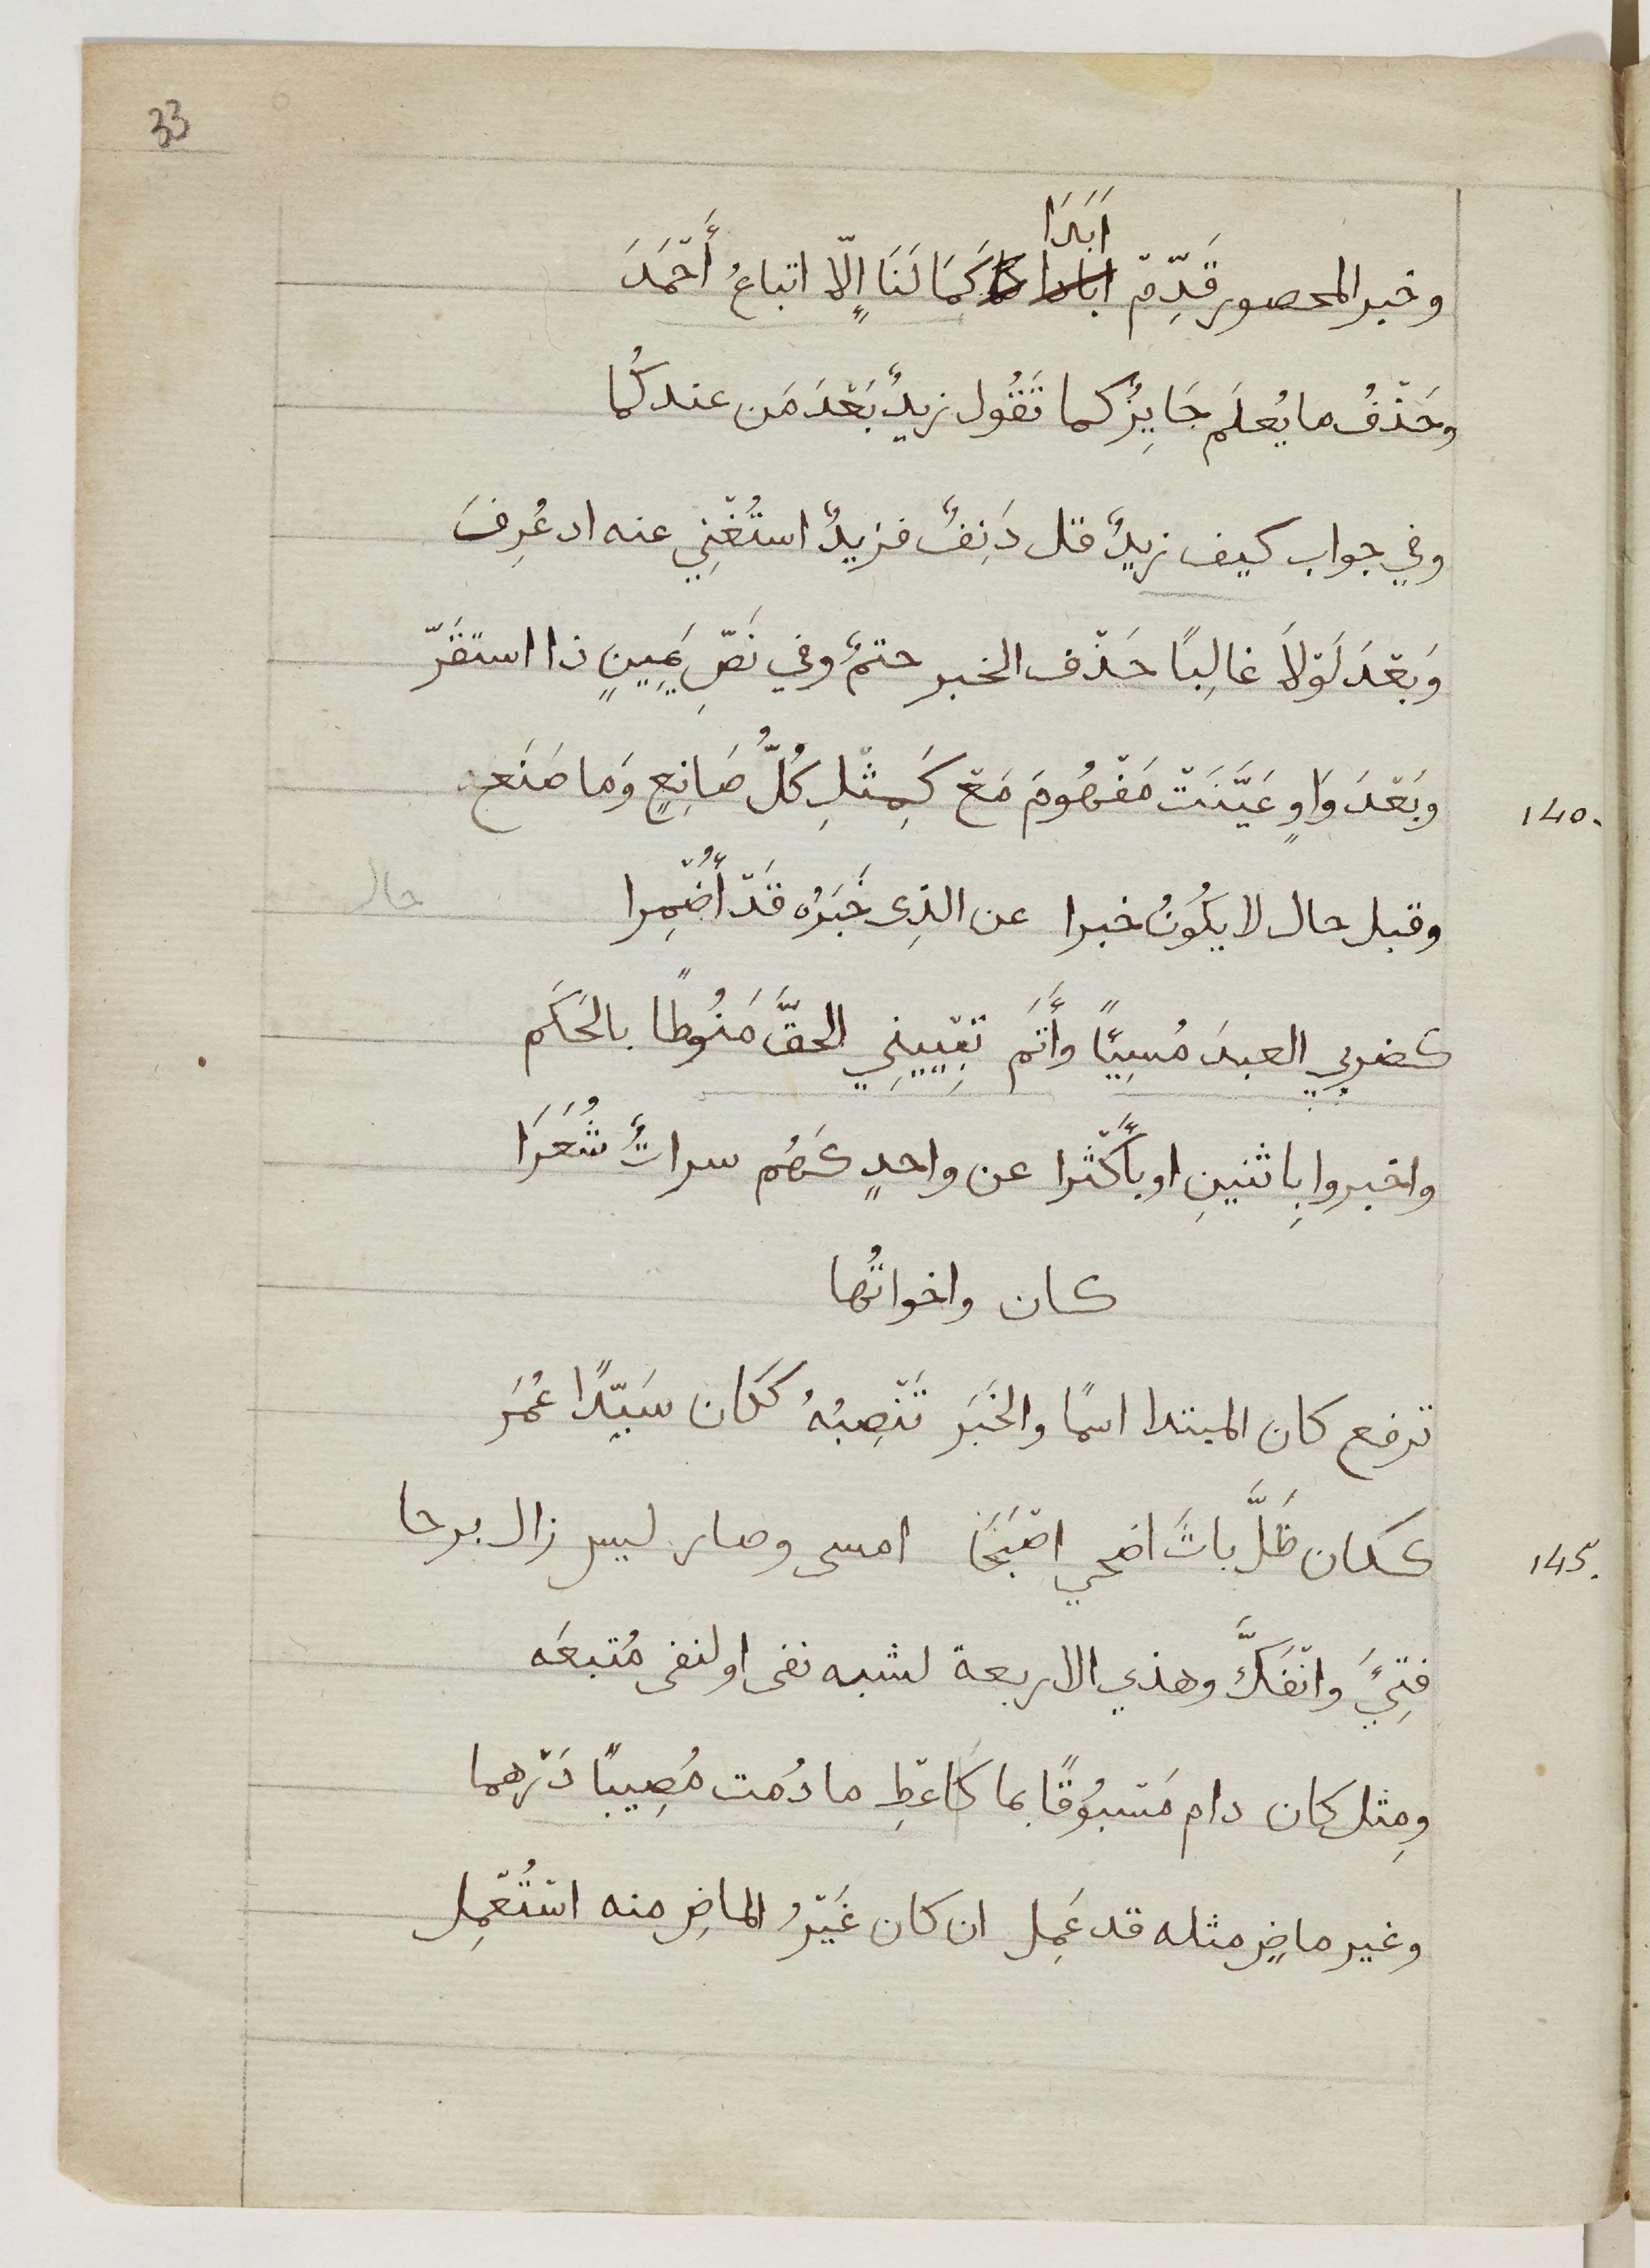 33
أَبَدَا
وخبر المحصور قَدِّمْ كَمَا لَنَا إِلّا اتباعُ أَحْمَدَ
وحَذْفُ ما يُعلَم جَايِزٌ كما تَقُول زيدٌ بَعْدَ مَن عندكُما
وفي جواب كيف زيدٌ قل دَنِفٌ فزيدٌ استُغْنِي عنه اد عُرِفَ
وَبَعْدَ لَوْلَا غالِبًا حَذْف الخبر حتمٌ وفي نَصِّ يَمِينٍ ذا استقَرّ
وبَعْدَ وَاوٍ عَيَّنَتْ مَفْهُومَ مَعْ كَمِثْلِ كُلُّ صَانِعٍ وَما صَنَع
140.
وقبل حال لا يكُونُ خبرا عن الذِى خَبَرُه قَدْ أُضْمِرا
حال
كضربي العبدَ مُسِيًّا وأَتَمّ تَبْيِينِي الحقَّ مَنُوطًا بالحَكَم
واخبروا بِاثنينِ او بأَكْثرا عن واحدٍ كهُم سراتٌ شُعَرَا
كان واخواتُها
ترفع كان المبتدا اسمًا والخَبَر تَنْصِبُهُ ككان سَيِّدًا عُمَر
ككان ظَلَّ باتَ اضحي اصْبَحَا امسى وصار ليس زال برحا
145.
فتِيَّ وانْفَكَّ وهذي الاربعة لشبه نفى او لنفى مُتبعَه
ومِثل كان دام مَسْبُوقًا بما كَاعْطِ ما دُمت مُصِيبًا دَرْهما
وغير ماضٍ مثله قد عَمِل ان كان غَيْرُ الماضِ منه استُعْمِل